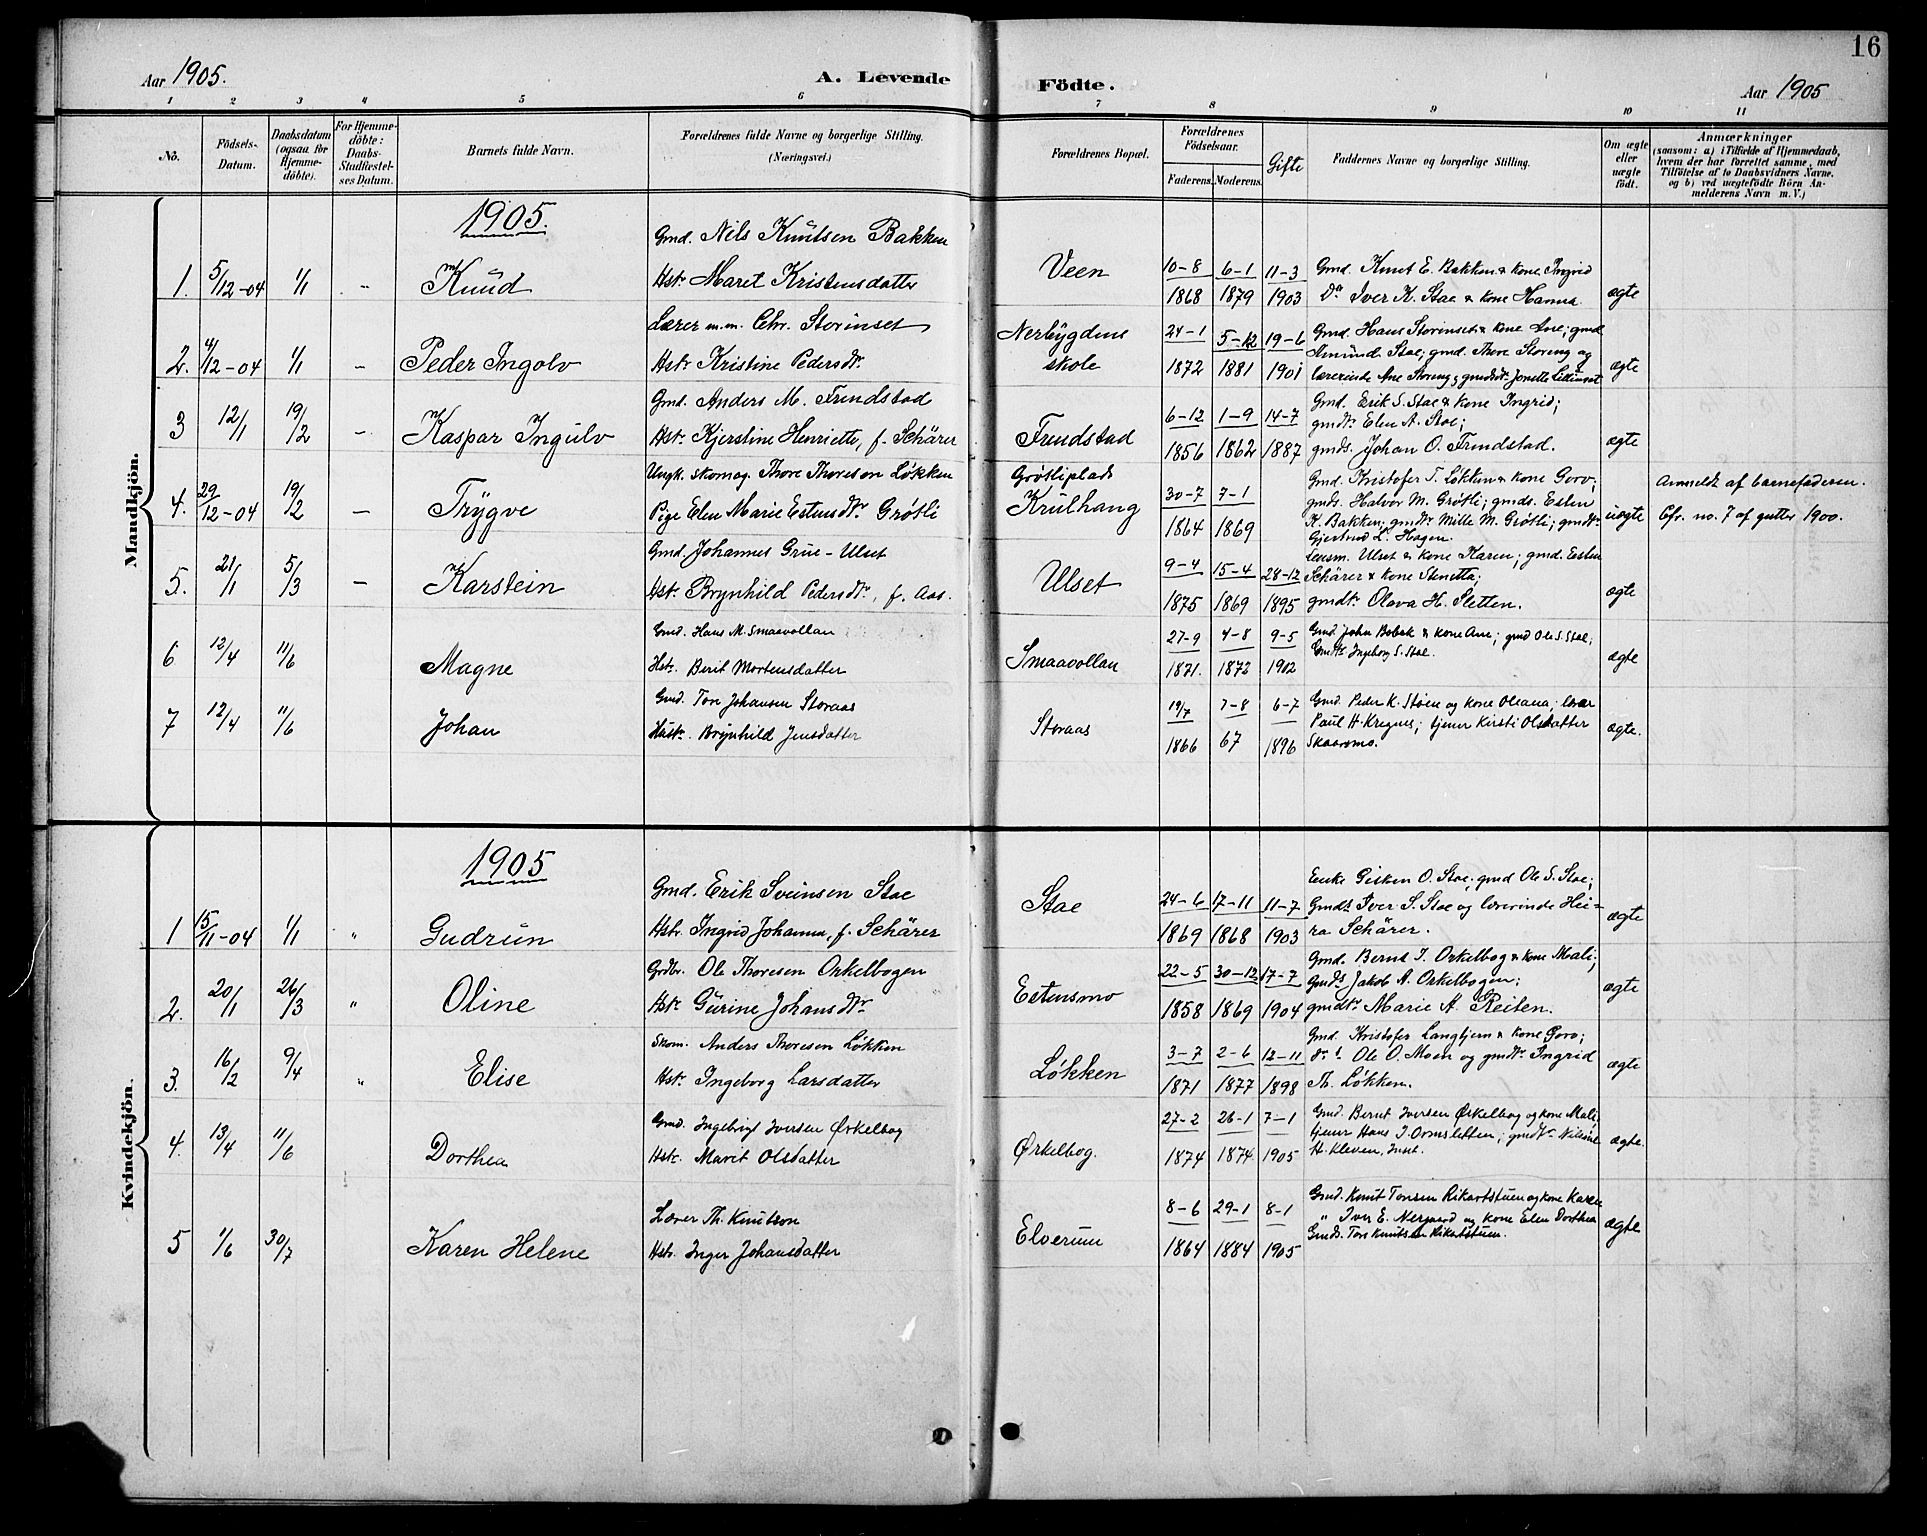 16
Aar 1905.
A. Levende
Födte.
Aar 1905
1 2 3 4 5 6 7 8 9 10 11
No.
Födsels-
Datum.
Daabsdatum
(ogsaa for
Hjemme-
döbte).
For Hjemme-
döbte:
Daabs-
Stadfæstel-
ses Datum.
Barnets fulde Navn.
Forældrenes fulde Navne og borgerlige Stilling.
(Næringsvei.)
Forældrenes Bopæl.
Forældrenes
Födselsaar.
Faderens. Moderens.
Gifte
Faddernes Navne og borgerlige Stilling.
Om ægte
eller
uægte
födt.
Anmærkninger
(saasom: a) i Tilfælde af Hjemmedaab,
hvem der har forrettet samme, med
Tilföielse af to Daabsvidners Navne.
og b) ved uægtefödte Börn An-
melderens Navn m. V.)
Mandkjön.
1905.
Gmd. Nils Knutsen Bakken
1. 5/12-04 1/1 - Knud Hstr. Marit Kristensdatter
Veen 10-8 1868 6-1 1879 11-3 1903
Gmd. Knut E. Bakken & kone Ingrid
Do Iver K. Stae & kone Hanna.
ægte
Lærer m.m. Chr. Storinset
2. 4/12-04 1/1 - Peder Ingolv Hstr. Kristine Pedersdtr.
Nerbygdens
skole
24-1 1872 5-12 1881 19-6 1901
Gmd. Hans Storinset & kone Ane; gmd.
Amund Stae; gmd. Thore Storeng og
lærerinde Ane Storeng; gmdsdtr. Jonette Lillinset
ægte
Gmd. Anders M. Frindstad
3 12/1 19/2 - Kaspar Ingulv Hstr. Kjerstine Henriette, f. Schärer
Frindstad 6-12 1856 1-9 1862 14-7 1887
Gmd. Erik S. Stae & kone Ingrid;
gmdtr. Elen A. Stae;
gmds. Johan O. Frindstad.
ægte
Ungk. skomag. Thore Thoreson Løkken
4. 29/12-04 19/2 - Trygve Pige Elen Marie Estensdtr. Grøtli
Grøtliplads
Krulhaug
30-7 1864 7-1 1869
Gmd. Kristofer T. Løkken & kone Goro;
gmds. Halvor M. Grøtli; gmds. Esten
K. Bakken; gmdtr. Mille M. Grøtli; gmdtr.
Gjertrud L. Hagen.
uægte
Anmeldt af barnefaderen.
Cfr. no. 7 af gutter 1900.
Gmd. Johannes Grue-Ulset
5. 21/1 5/3 - Karstein Hstr. Brynhild Pedersdtr., f. Aas.
Ulset 9-4 1875 15-4 1869 28-12 1895
Lensm. Ulset & kone Karen; gmd. Esten
Schärer & kone Stenetta;
gmdtr. Olava H. Sletten.
ægte
Gmd. Hans M. Smaavollan
6 12/4 11/6 Magne Hstr. Berit Mortensdatter
Smaavollan 27-9 1871. 4-8 1872 9-5 1902
Gmd John Bobak & kone Ane; gmd Ole S. Stae;
Gmdtr. Ingeborg S. Stae.
ægte
Gmd. Tore Johansen Storaas
7 12/4 11/6 Johan Hustr. Brynhild Jensdatter
Storaas 19/7 1866 7-8 67 6-7 1896
Gmd. Peder K. Støen og kone Oleana; lærer
Paul H. Kregnes; tjener Kirsti Olsdatter
Skaarsmo.
ægte.
Kvindekjön.
1905
Gmd. Erik Sveinsen Stae
1 15/11-04 1/1 " Gudrun Hstr. Ingrid Johanna, f. Schärer
Stae 24-6 1869 17-11 1868 11-7 1903
Enke Gisken O. Stae; gmd Ole S. Stae;
Gmds Iver S. Stae og lærerinde Hu-
ra Schärer.
ægte
Grdbr. Ole Thoresen Orkelbogen
2. 20/1 26/3 " Oline Hstr. Gurine Johansdtr
Estensmo 22-5 1858 30-12 1869 17-7 1904
Gmd. Bernt I. Orkelbog & kone Mali;
Gmds Jakob A. Orkelbogen;
gmdtr. Marie A. Reiten.
ægte
Skom. Anders Thoresen Løkken
3. 16/2 9/4 " Elise Hstr. Ingeborg Larsdatter
Løkken 3-7 1871 2-6 1877 12-11 1898
Gmd. Kristofer Langbjern & kone Goro;
do Ole O. Moen og gmdtr. Ingrid
Th. Løkken.
ægte
Gmd. Ingebrigt Iversen Ørkelbog
4. 13/4 11/6 Dorthea Hstr. Marit Olsdatter
Ørkelbog. 27-2 1874 26-1 1874 7-1 1905
Gmd. Bernt Iversen Ørkelbog og kone Mali;
tjener Hans J. Ormsletten; gmdtr.
H. Kleven, Inset.
ægte.
Lærer Th. Knutson
5 1/6 30/7 Karen Helene Hstr. Inger Johansdatter
Elverum 8-6 1864 29-1 1884 8-1 1905
Gmd. Knut Tonsen Rikartstuen og kone Karen
" Iver E. Nergaard og kone Elen Dorthea
Gmds. Tore Knutsen Rikartstuen.
ægte